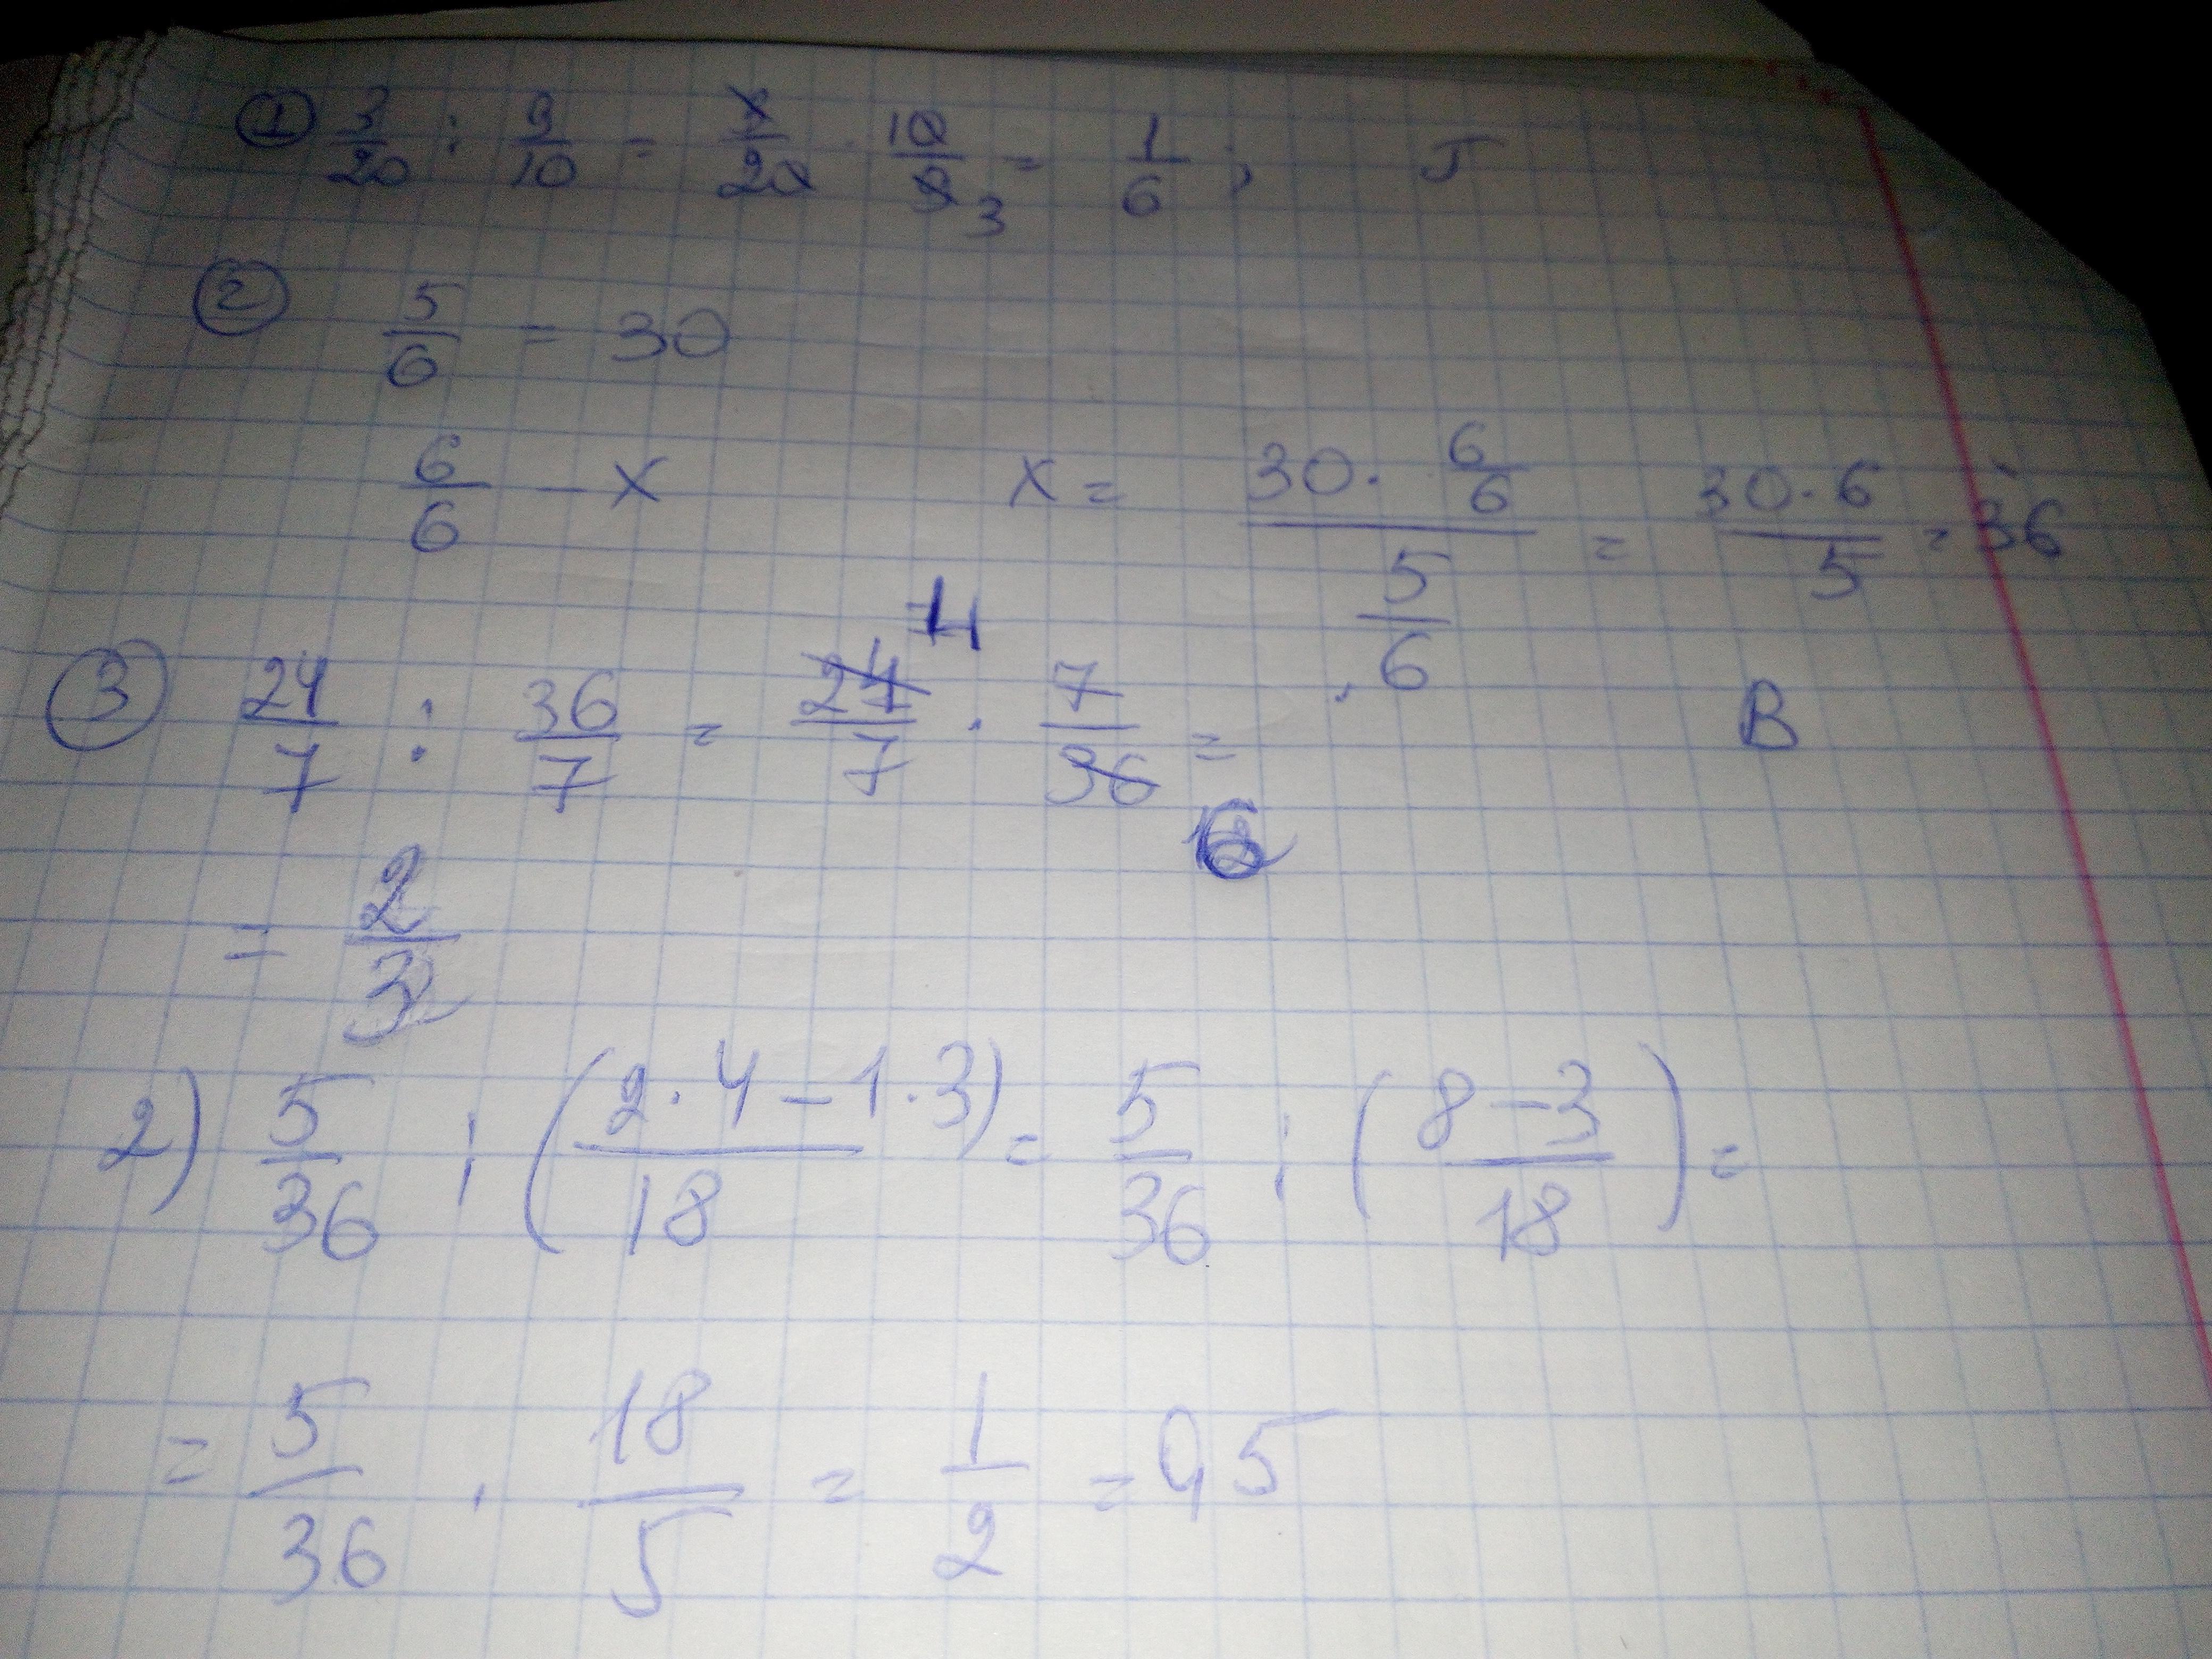 ① 3/20 : 9/10 = 3/20 · 10/9 3 = 1/6 ;
② 5/6 = 30
6/6 – x x = (30 · 6/6)/(5/6) = (30 · 6)/5 = 36
③ 24/7 : 36/7 = 24/7 4 · 7/36 6 = B
= 2/3
2) 5/36 : ((2 · 4 – 1 · 3)/18) = 5/36 : ((8 – 3)/18) =
= 5/36 · 18/5 = 1/2 = 0,5